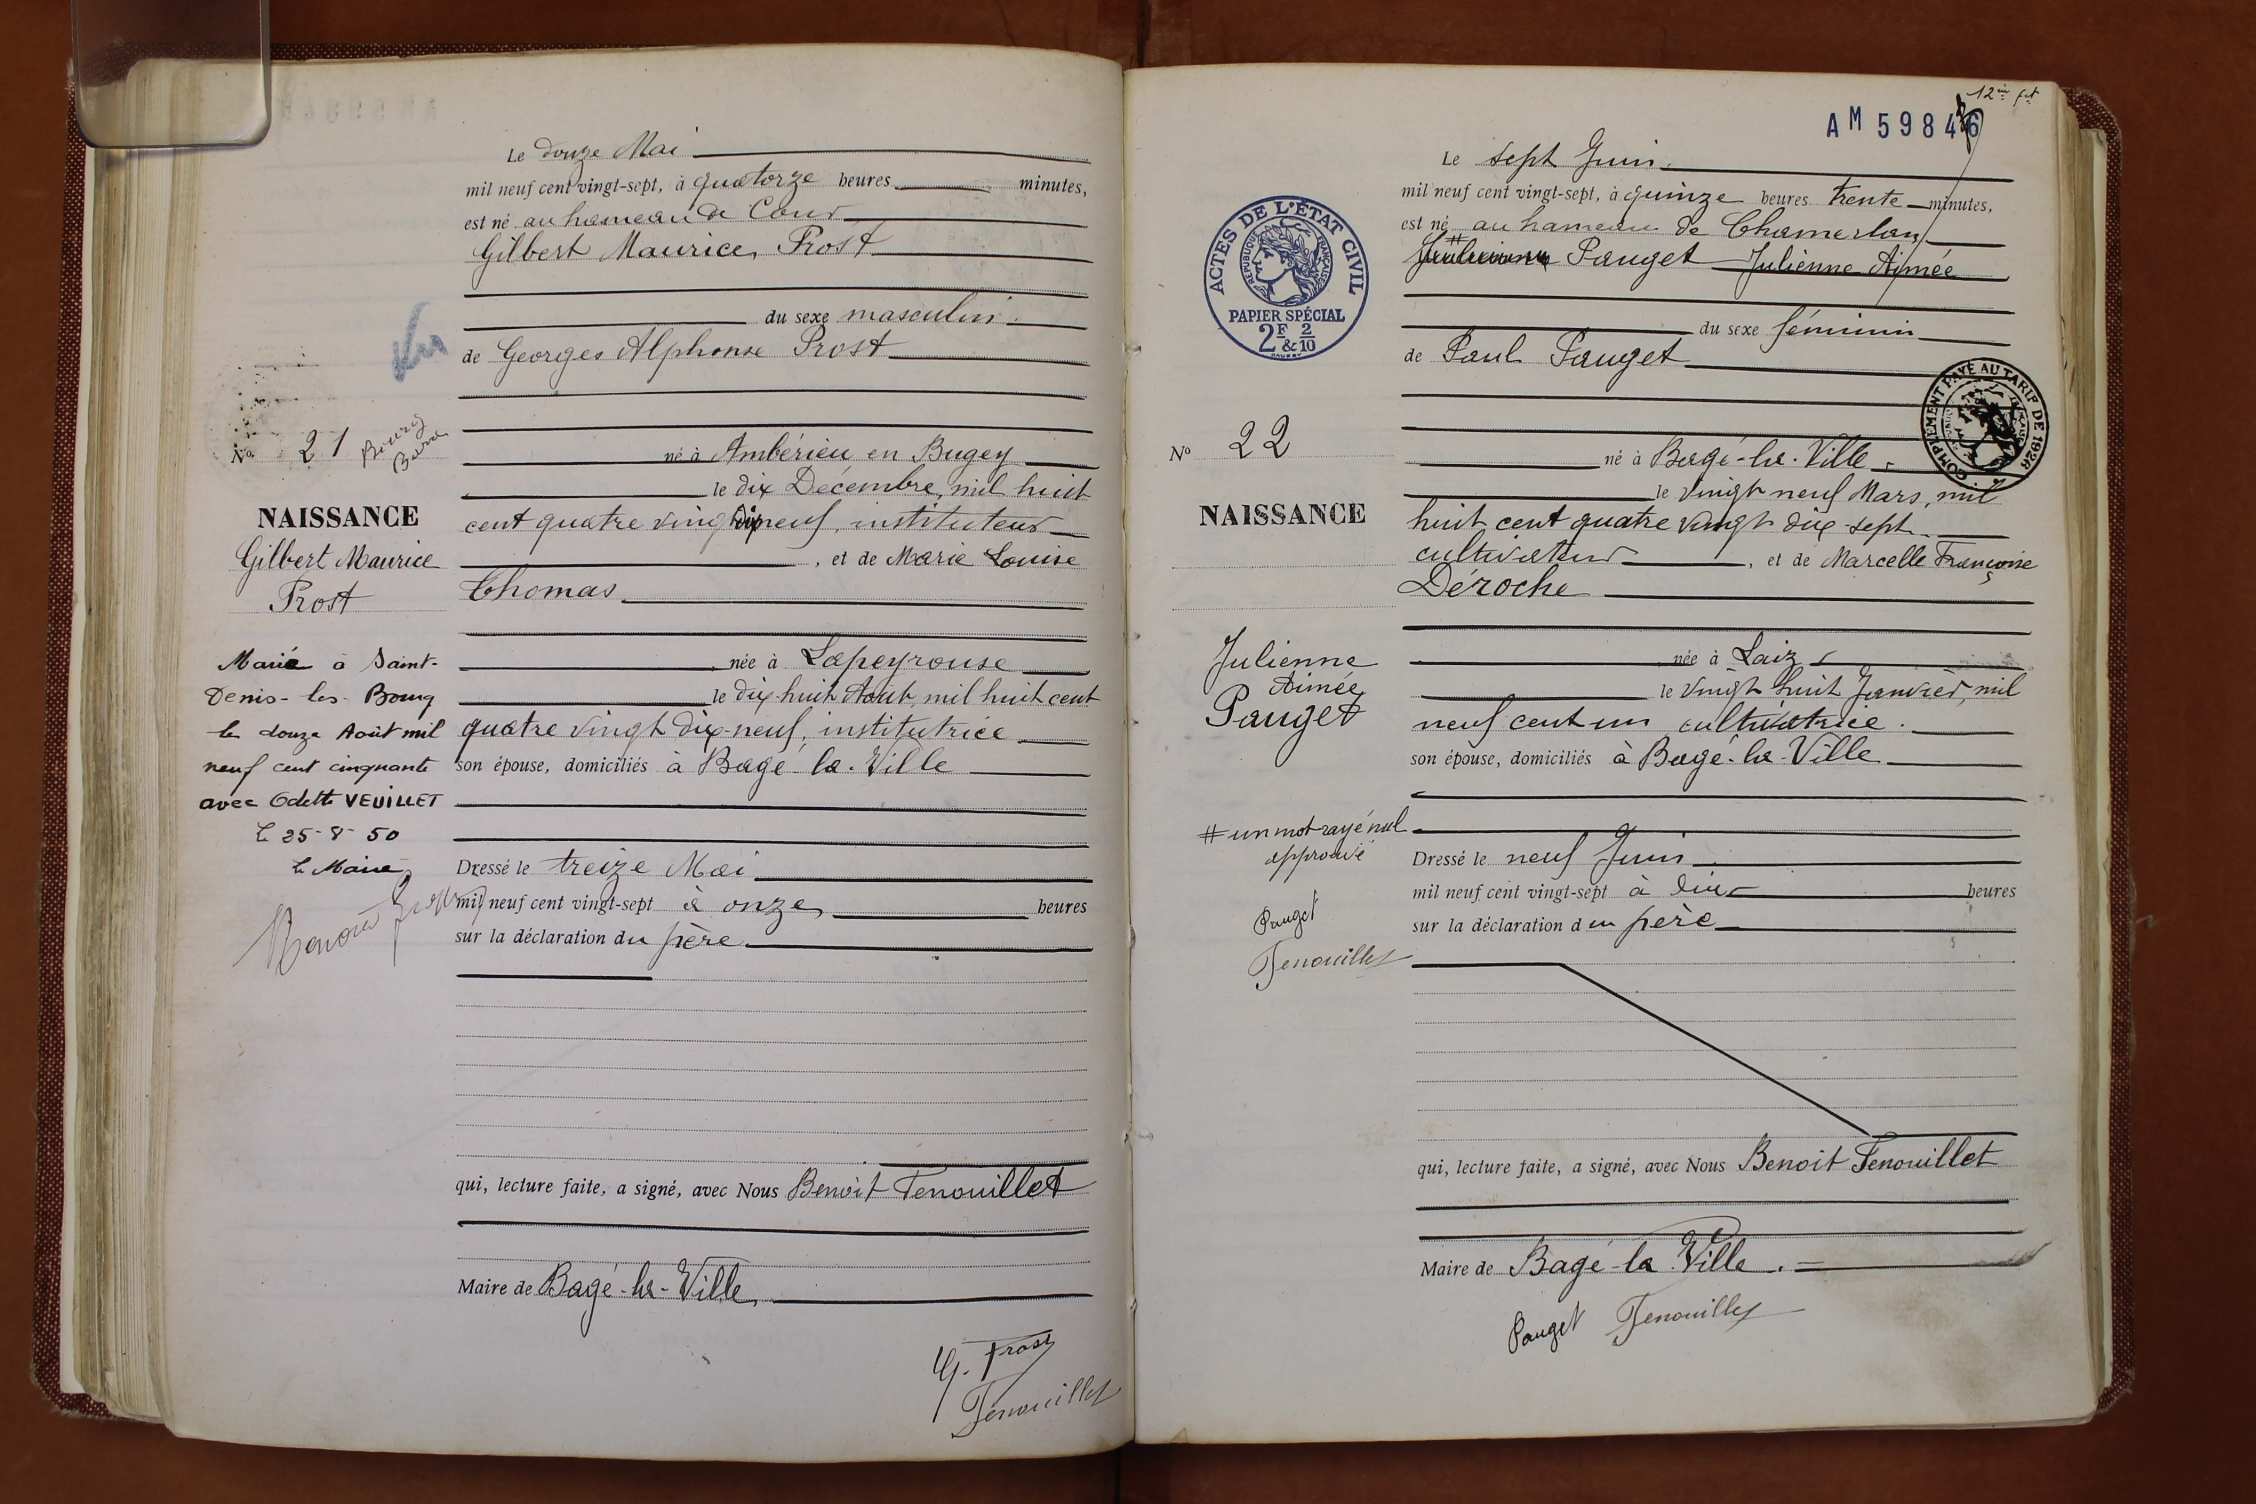 Le douze Mai
mil neuf cent vingt-sept, à quatorze heures minutes,
est né au hameau de Cour
Gilbert Maurice Prost
du sexe masculin.
de Georges Alphonse Prost
né à Ambérieu en Bugey
le dix Décembre, mil huit
cent quatre vingt dix neuf, instituteur
, et de Marie Louise
Thomas
née à Lapeyrouse
le dix huit Août, mil huit cent
quatre vingt dix-neuf, institutrice
son épouse, domiciliés à Bagé-la-Ville
Dressé le treize Mai
mil neuf cent vingt-sept à onze heures
sur la déclaration du père
qui, lecture faite, a signé, avec Nous Benoit Fenouillet
Maire de Bagé-la-Ville
G. Prost
Fenouillet
No 21
Bourg
NAISSANCE
Gilbert Maurice
Prost
Marié à Saint-
Denis-les-Bourg
le douze Août mil
neuf cent cinquante
avec Odette VEUILLET
Le 25-8-50
Le Maire
12
AM 59846
Le sept Juin
mil neuf cent vingt-sept, à quinze heures trente minutes,
est né au hameau de Chamerlan
# Pauget Julienne Aimée
du sexe féminin
de Paul Pauget
né à Bagé-la-Ville
le vingt neuf Mars, mil
huit cent quatre vingt dix-sept
cultivateur , et de Marcelle Françoise
Déroche
née à Laiz
le vingt huit Janvier, mil
neuf cent un cultivatrice.
son épouse, domiciliés à Bagé-la-Ville
Dressé le neuf Juin
mil neuf cent vingt-sept à dix heures
sur la déclaration du père
qui, lecture faite, a signé, avec Nous Benoit Fenouillet
Maire de Bagé-la-Ville.
Pauget Fenouillet
ACTES DE L'ÉTAT CIVIL
RÉPUBLIQUE FRANÇAISE
PAPIER SPÉCIAL
2F & 2/10
COMPLÉMENT PAYÉ AU TARIF DE 1926
No 22
NAISSANCE
Julienne
Aimée
Pauget
# un mot rayé nul
approuvé
Pauget
Fenouillet